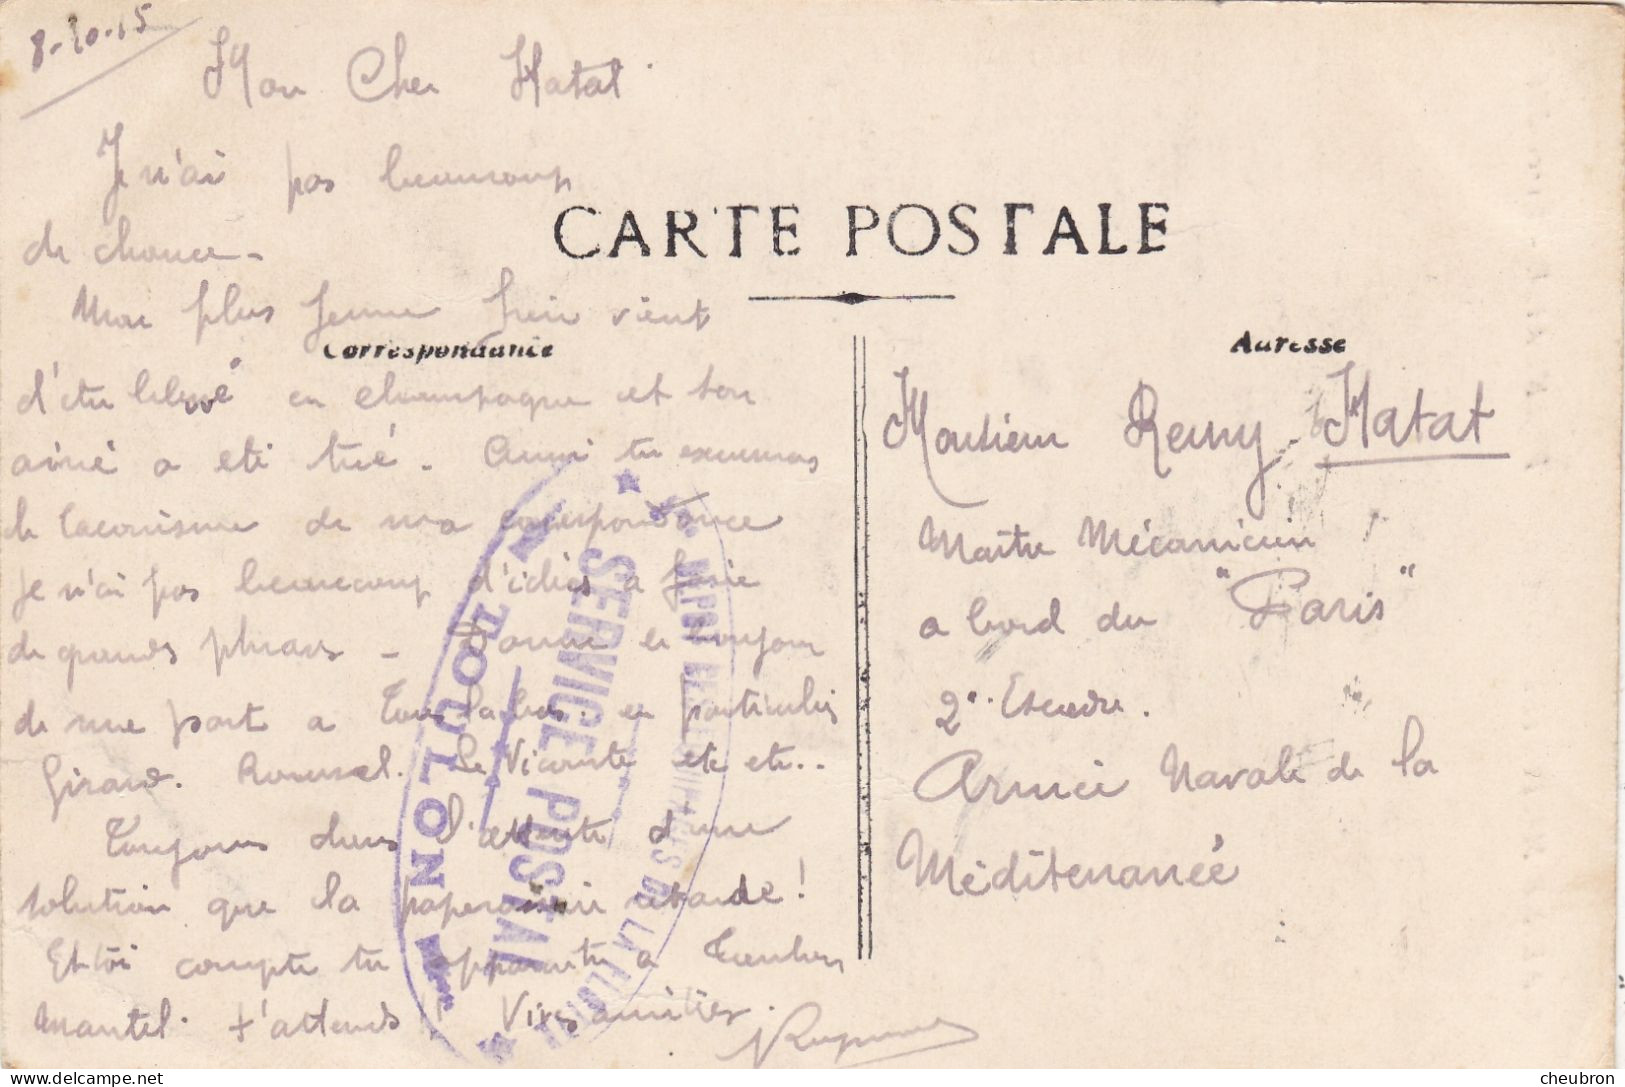 8-10-15
Mon Cher Hatat
Je n'ai pas beaucoup
de chance -
Mon plus jeune frère vient
d'etre blessé en champagne et son
ainé a eté tué. Aussi tu excuseras
le laconisme de ma correspondance
Je n'ai pas beaucoup d'idées a
de grandes phrases - Donne le bonjour
de me part a Tous en particulier
Girard. Roussel. Le Vicomte etc etc..
Toujours dans l'attente d'une
solution que la paperasserie retarde!
Et toi compte tu apparaitre a Toulon
t'attends! Vives amitiés.
CARTE POSTALE
Correspondance
Adresse
Monsieur Remy Hatat
Maitre Mécanicien
a bord du "Paris"
2e Escadre.
Armée Navale de la
Méditerranée
SERVICE POSTAL
TOULON
cheubron@delcampe.net